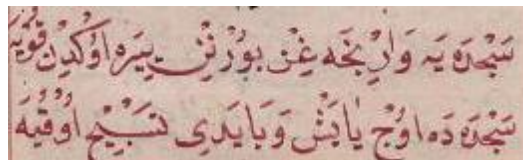 سَجْدَه يَه وَارِنْجَه غِنْ بُورْنِنْ يِيرَه اوُّكْدِنْ قُويَه
سَجْدَه دَه اوُجْ يَا بَشْ وَيَا يَدِى تَسْبِيحْ اوُقُيَه